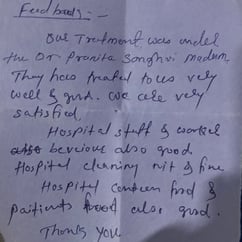 Feedback:-
Our Treatment was under
the Dr Pranita Sanghvi madam
They has treated to us very
well & good. We are very
satisfied.
Hospital stuff & worker
also bevious also good.
Hospital cleaning nit & fine
Hospital canteen food &
paitients food also good.
Thank you